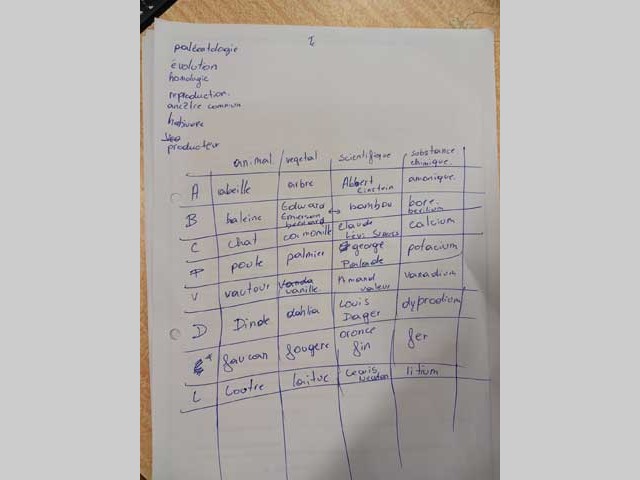 paléontologie
évolution
homologie
reproduction
ancêtre commun
producteur
animal vegetal scientifique substance chimique
A abeille arbre Albert Einstein amonique
B baleine Edward Emerson bernard ↔ bambou bore berilium
C chat camomille claude Lévi Strauss calcium
P poule palmier george Palade potacium
V vautour vanille Amand valeur vanadium
D Dinde dahlia Louis Dager dyprodium
faucon fougere oronce fin fer
L Loutre laitue Lewis Newton litium